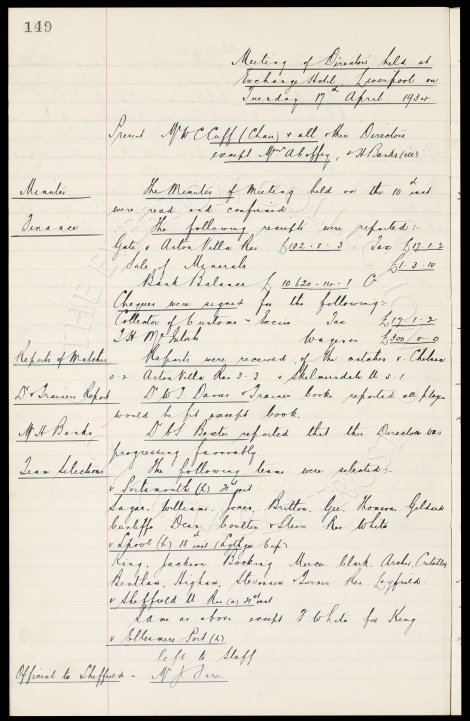 149
Meeting of Directors held at
Exchange Hotel, Liverpool on
Tuesday 17th April 1934
Present Mr W C Cuff (Chair) & all other Directors
except Messrs & H Banks (ill)
Minutes The Minutes of Meeting held on the 10th inst
were read and confirmed.
Finance The following receipts were reported:-
Gate v Aston Villa Res £102-8-3 Tax £17-1-2
Sale of Minerals £1-3-10
Bank Balance £10620-14-1
Cheques were signed for the following:-
Collector of Customs & Excise Tax £17/1-2
T H McIntosh Wages £300/0-0
Reports of Matches Reports were received of the matches v. Chelsea
0-2 Aston Villa Res 3-3 & Skelmersdale U 5-1
Dr & Trainers Report Dr W J Davies & Trainer Cooke reported all players
would be fit except Cook.
Mr H Banks Dr C S Baxter reported that this Director was
progressing favorably
Team Selections The following teams were selected:-
v Portsmouth (h) 21st inst
Sagar, Williams, Jones, Britton, Gee, Thomson, Geldard
Cunliffe, Dean, Coulter & Stein Res. White
v L'pool (h) 18th inst (Lythgoe Cup)
King, Jackson, Bocking, Mercer, Clark, Archer, Critchley
Bentham, Higham, Stevenson & Turner Res Leyfield
v Sheffield U Res (a) 21st inst
Same as above except T White for King
v Ellesmere Port (h)
left to Staff
Official to Sheffield - Mr J